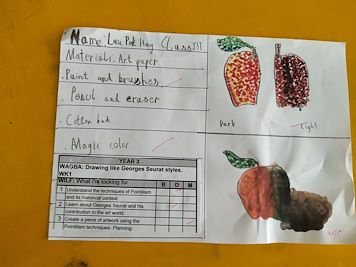 Name: Lau Pok Hay Class: 3T
Materials: Art paper
. Paint and brushes
. Pencil and eraser
. Citton bud
. Magic color
Dark
Light
YEAR 3
WAGBA: Drawing like Georges Seurat styles.
WK1
WILF: What I'm looking for B D M
1 Understand the techniques of Pointilism and its historical context
2 Learn about Georges Seurat and his contribution to the art world.
3 Create a piece of artwork using the Pointilism techniques- Planning